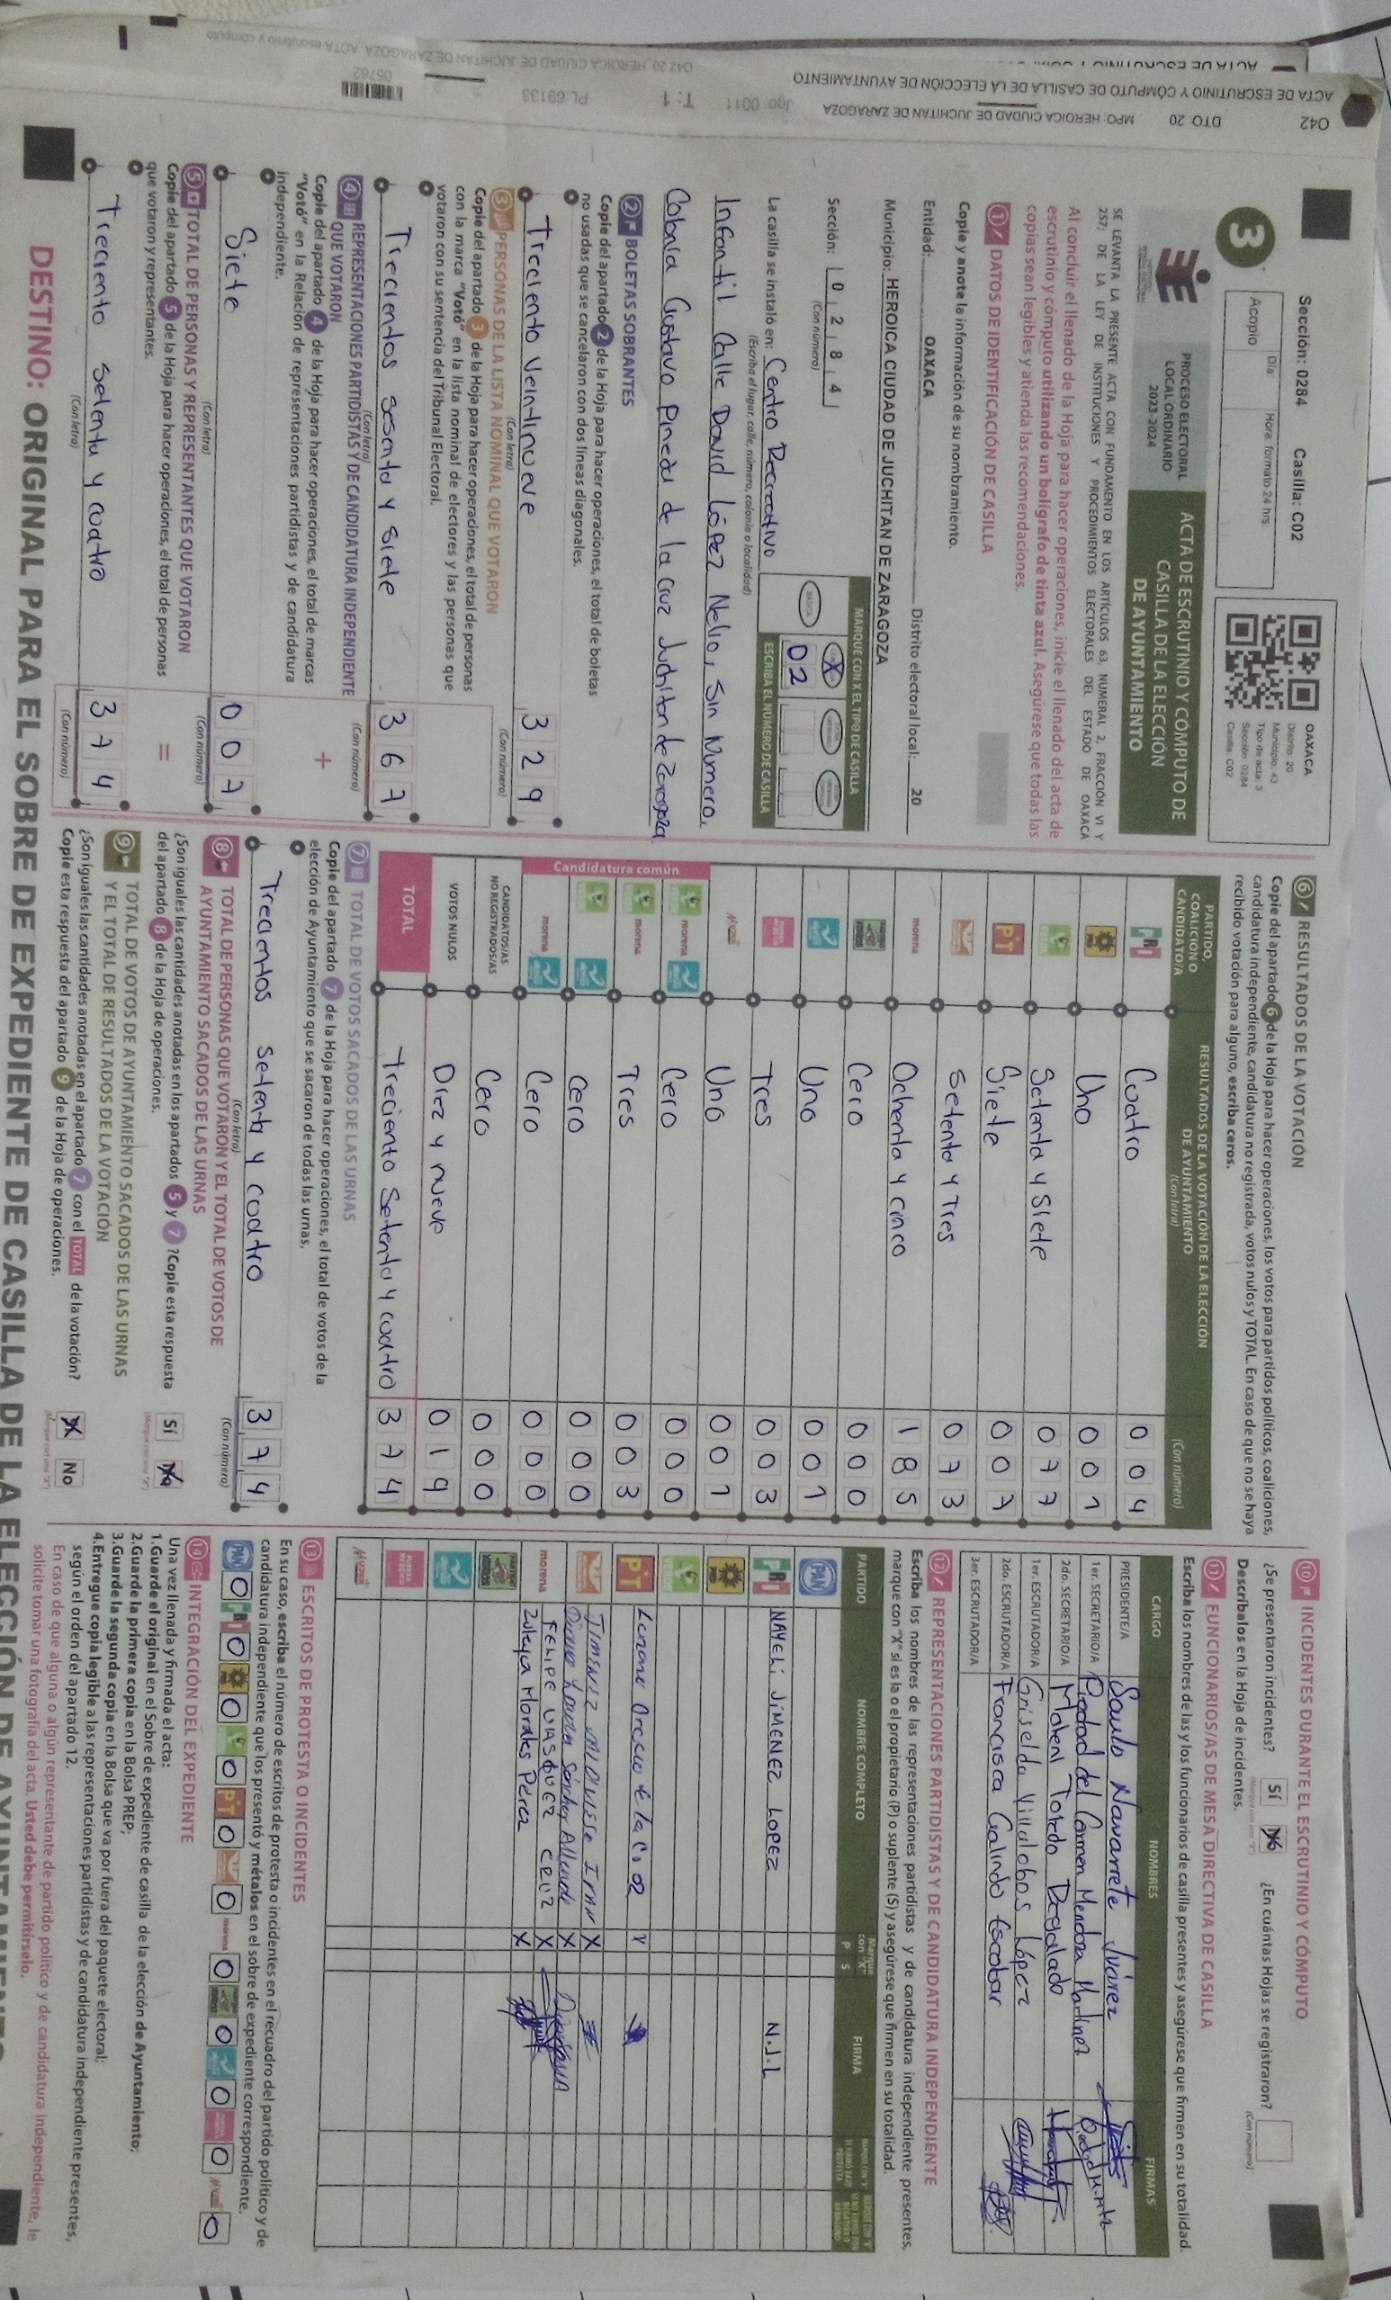 042 DTO 20 MPO: HEROICA CIUDAD DE JUCHITAN DE ZARAGOZA
ACTA DE ESCRUTINIO Y CÓMPUTO DE CASILLA DE LA ELECCIÓN DE AYUNTAMIENTO
T: 1
PL 69133
05762
Sección: 0284 Casilla: C02
3
Acopio
Día
Hora: formato 24 hrs
OAXACA
Distrito: 20
Municipio: 43
Tipo de acta: 3
Sección: 0284
Casilla: C02
PROCESO ELECTORAL
LOCAL ORDINARIO
2023-2024
ACTA DE ESCRUTINIO Y CÓMPUTO DE
CASILLA DE LA ELECCIÓN
DE AYUNTAMIENTO
SE LEVANTA LA PRESENTE ACTA CON FUNDAMENTO EN LOS ARTÍCULOS 63, NUMERAL 2, FRACCIÓN VI Y
257; DE LA LEY DE INSTITUCIONES Y PROCEDIMIENTOS ELECTORALES DEL ESTADO DE OAXACA
Al concluir el llenado de la Hoja para hacer operaciones, inicie el llenado del acta de
escrutinio y cómputo utilizando un bolígrafo de tinta azul. Asegúrese que todas las
copias sean legibles y atienda las recomendaciones.
1 DATOS DE IDENTIFICACIÓN DE CASILLA
Copie y anote la información de su nombramiento.
Entidad: OAXACA Distrito electoral local: 20
Municipio: HEROICA CIUDAD DE JUCHITAN DE ZARAGOZA
Sección: 0 2 8 4
(Con número)
MARQUE CON X EL TIPO DE CASILLA
X
ESCRIBA EL NÚMERO DE CASILLA
02
La casilla se instaló en: Centro Recreativo
(Escriba el lugar, calle, número, colonia o localidad)
Infantil Calle David López Nelio, Sin Numero,
Colonia Gustavo Pineda de la Cruz Juchitan de Zaragoza
2 BOLETAS SOBRANTES
Copie del apartado 2 de la Hoja para hacer operaciones, el total de boletas
no usadas que se cancelaron con dos líneas diagonales.
Treciento Veintinueve 3 2 9
(Con letra) (Con número)
3 PERSONAS DE LA LISTA NOMINAL QUE VOTARON
Copie del apartado 3 de la Hoja para hacer operaciones, el total de personas
con la marca "Votó" en la lista nominal de electores y las personas que
votaron con su sentencia del Tribunal Electoral.
Trecientos sesenta y siete 3 6 7
(Con letra) (Con número)
4 REPRESENTACIONES PARTIDISTAS Y DE CANDIDATURA INDEPENDIENTE
QUE VOTARON
Copie del apartado 4 de la Hoja para hacer operaciones, el total de marcas
"Votó" en la Relación de representaciones partidistas y de candidatura
independiente.
+
Siete 0 0 7
(Con letra) (Con número)
5 TOTAL DE PERSONAS Y REPRESENTANTES QUE VOTARON
Copie del apartado 5 de la Hoja para hacer operaciones, el total de personas
que votaron y representantes.
=
Treciento setenta y cuatro 3 7 4
(Con letra) (Con número)
6 RESULTADOS DE LA VOTACIÓN
Copie del apartado 6 de la Hoja para hacer operaciones, los votos para partidos políticos, coaliciones,
candidatura independiente, candidatura no registrada, votos nulos y TOTAL. En caso de que no se haya
recibido votación para alguno, escriba ceros.
PARTIDO,
COALICIÓN O
CANDIDATO/A
RESULTADOS DE LA VOTACIÓN DE LA ELECCIÓN
DE AYUNTAMIENTO
(Con letra) (Con número)
PRI Cuatro 0 0 4
Uno 0 0 1
Setenta y siete 0 7 7
PT Siete 0 0 7
Setenta y Tres 0 7 3
morena Ochenta y cinco 1 8 5
Cero 0 0 0
Uno 0 0 1
Tres 0 0 3
Uno 0 0 1
Candidatura común
morena Cero 0 0 0
morena Tres 0 0 3
cero 0 0 0
morena Cero 0 0 0
CANDIDATOS/AS
NO REGISTRADOS/AS Cero 0 0 0
VOTOS NULOS Diez y nueve 0 1 9
TOTAL treciento setenta y cuatro 3 7 4
7 TOTAL DE VOTOS SACADOS DE LAS URNAS
Copie del apartado 7 de la Hoja para hacer operaciones, el total de votos de la
elección de Ayuntamiento que se sacaron de todas las urnas.
Trecientos setenta y cuatro 3 7 4
(Con letra) (Con número)
8 TOTAL DE PERSONAS QUE VOTARON Y EL TOTAL DE VOTOS DE
AYUNTAMIENTO SACADOS DE LAS URNAS
¿Son iguales las cantidades anotadas en los apartados 5 y 7? Copie esta respuesta
del apartado 8 de la Hoja de operaciones.
Sí No
9 TOTAL DE VOTOS DE AYUNTAMIENTO SACADOS DE LAS URNAS
Y EL TOTAL DE RESULTADOS DE LA VOTACIÓN
¿Son iguales las cantidades anotadas en el apartado 7 con el TOTAL de la votación?
Copie esta respuesta del apartado 9 de la Hoja de operaciones.
X No
10 INCIDENTES DURANTE EL ESCRUTINIO Y CÓMPUTO
¿Se presentaron incidentes? Sí No ¿En cuántas Hojas se registraron?
(Con número)
Descríbalos en la Hoja de incidentes.
11 FUNCIONARIOS/AS DE MESA DIRECTIVA DE CASILLA
Escriba los nombres de las y los funcionarios de casilla presentes y asegúrese que firmen en su totalidad.
CARGO NOMBRES FIRMAS
PRESIDENTE/A Saulo Navarrete Juárez
1er. SECRETARIO/A Piedad del Carmen Mendoza Martinez
2do. SECRETARIO/A Toledo Regalado
1er. ESCRUTADOR/A Griselda Villalobos López
2do. ESCRUTADOR/A Francisca Galindo Escobar
3er. ESCRUTADOR/A
12 REPRESENTACIONES PARTIDISTAS Y DE CANDIDATURA INDEPENDIENTE
Escriba los nombres de las representaciones partidistas y de candidatura independiente presentes,
marque con "X" si es la o el propietario (P) o suplente (S) y asegúrese que firmen en su totalidad.
PARTIDO NOMBRE COMPLETO Marque con "X" P S FIRMA
PAN
PRI NAYELI JIMENEZ LOPEZ N.J.L
PT
X
X
morena FELIPE VASQUEZ CRUZ X
Zuleyka Morales Perez X
13 ESCRITOS DE PROTESTA O INCIDENTES
En su caso, escriba el número de escritos de protesta o incidentes en el recuadro del partido político y de
candidatura independiente que los presentó y métalos en el sobre de expediente correspondiente.
PAN 0 PRI 0 0 0 PT 0 0 morena 0 0 0 0 0
14 INTEGRACIÓN DEL EXPEDIENTE
Una vez llenada y firmada el acta:
1.Guarde el original en el Sobre de expediente de casilla de la elección de Ayuntamiento;
2.Guarde la primera copia en la Bolsa PREP;
3.Guarde la segunda copia en la Bolsa que va por fuera del paquete electoral;
4.Entregue copia legible a las representaciones partidistas y de candidatura independiente presentes,
según el orden del apartado 12.
En caso de que alguna o algún representante de partido político y de candidatura independiente, le
solicite tomar una fotografía del acta, Usted debe permitírselo.
DESTINO: ORIGINAL PARA EL SOBRE DE EXPEDIENTE DE CASILLA DE LA ELECCIÓN DE AYUNTAMIENTO